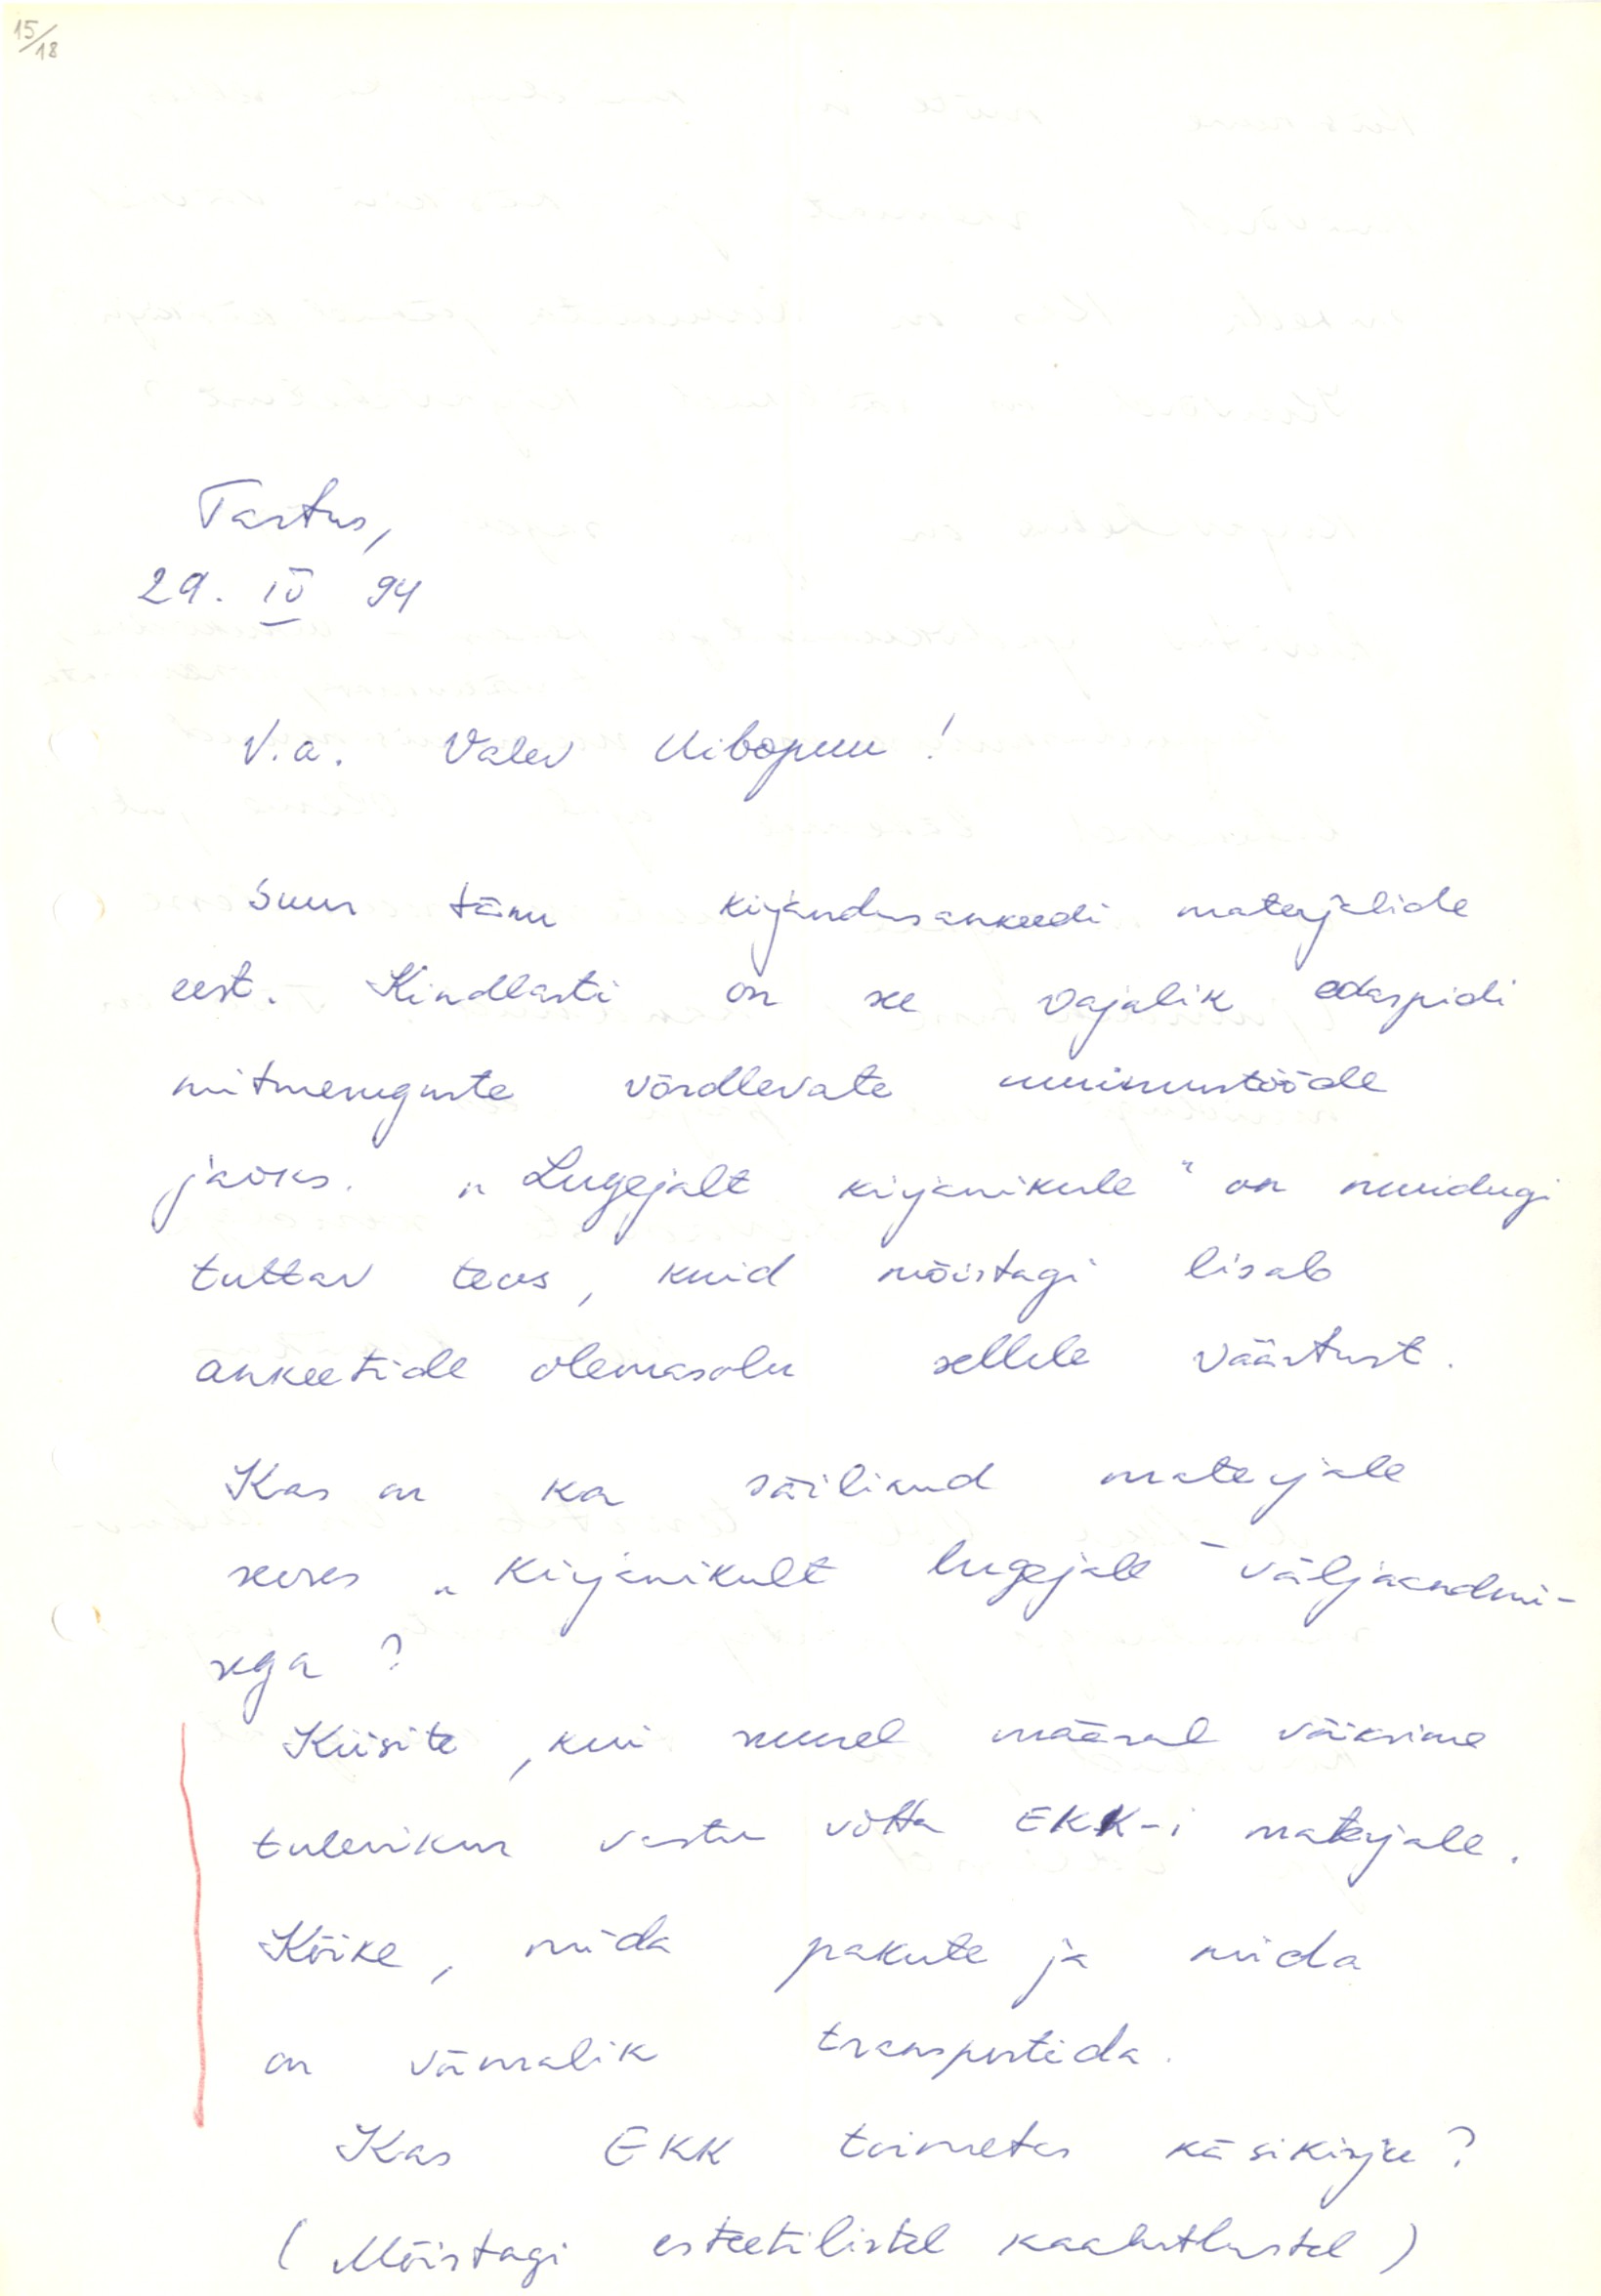 15/18
Tartus,
29. IV 94
V.a. Valev Uibopuu!
Suur tänu kirjandusankeedi materjalide
eest. Kindlasti on see vajalik edaspidi
mitmesuguste võrdlevate uurimustööde
jaoks. „Lugejalt kirjanikule" on muidugi
tuttav teos, kuid mõistagi lisab
ankeetide olemasolu sellele väärtust.
Kas on ka säilinud materjale
seoses „Kirjanikult lugejale" väljaandmi-
sega?
Küsite, kui suurel määral võiksime
tulevikus vastu võtta EKK-i materjale.
Kõike, mida pakute ja mida
on võimalik transportida.
Kas EKK toimetas käsikirju?
(Mõistagi esteetilistel kaalutlustel)